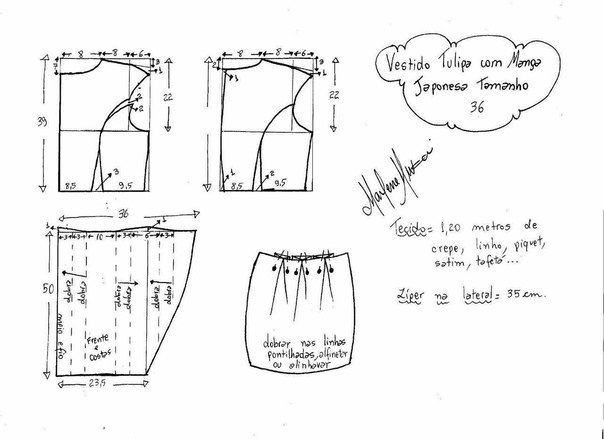 8 8 6
2 3
1
2
2
39
22
3
8,5 9,5
8 8 6
2 3
1
22
1
2
8,5 9,5
Vestido Tulipa com Manga
Japonesa Tamanho
36
Marlene Mukai
Tecido = 1,20 metros de
crepe, linho, piquet,
satim, tafetá...
Zíper na lateral = 35 cm.
36
1 1
3 3 10 3 6 3
50
dobra dobra
dobra dobra
dobra dobra
meio e fio
Frente
e
costas
23,5
dobrar nas linhas
pontilhadas, alfinetar
ou alinhavar